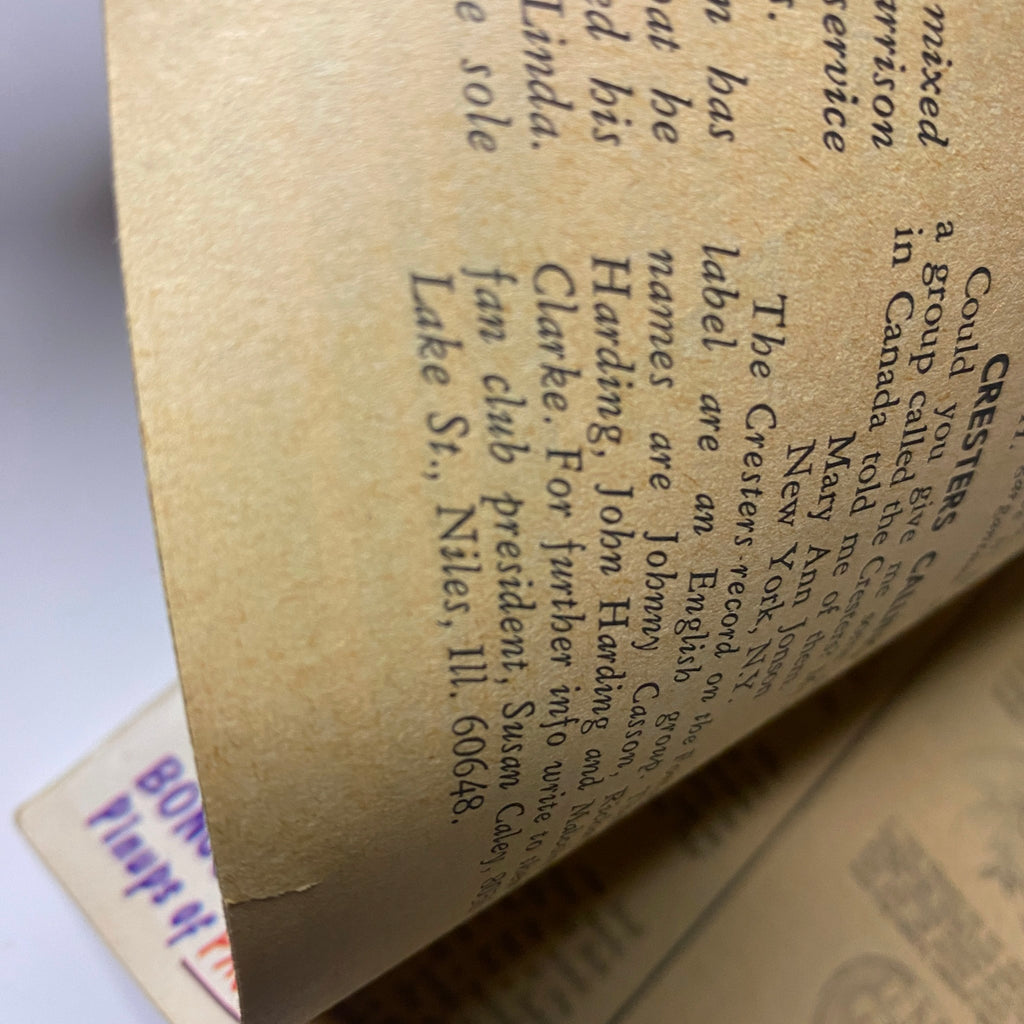 mixed
arrison
service
s.
n has
at he
ed his
Linda.
e sole
CRESTERS
Could you give me
a group called the Cresters
in Canada told me of them.
Mary Ann Jonson
New York, N.Y.
The Cresters record on the
label are an English group,
names are Johnny Casson,
Harding, John Harding and
Clarke. For further info write to
fan club president, Susan Caley,
Lake St., Niles, Ill. 60648.
BON
Pinups of